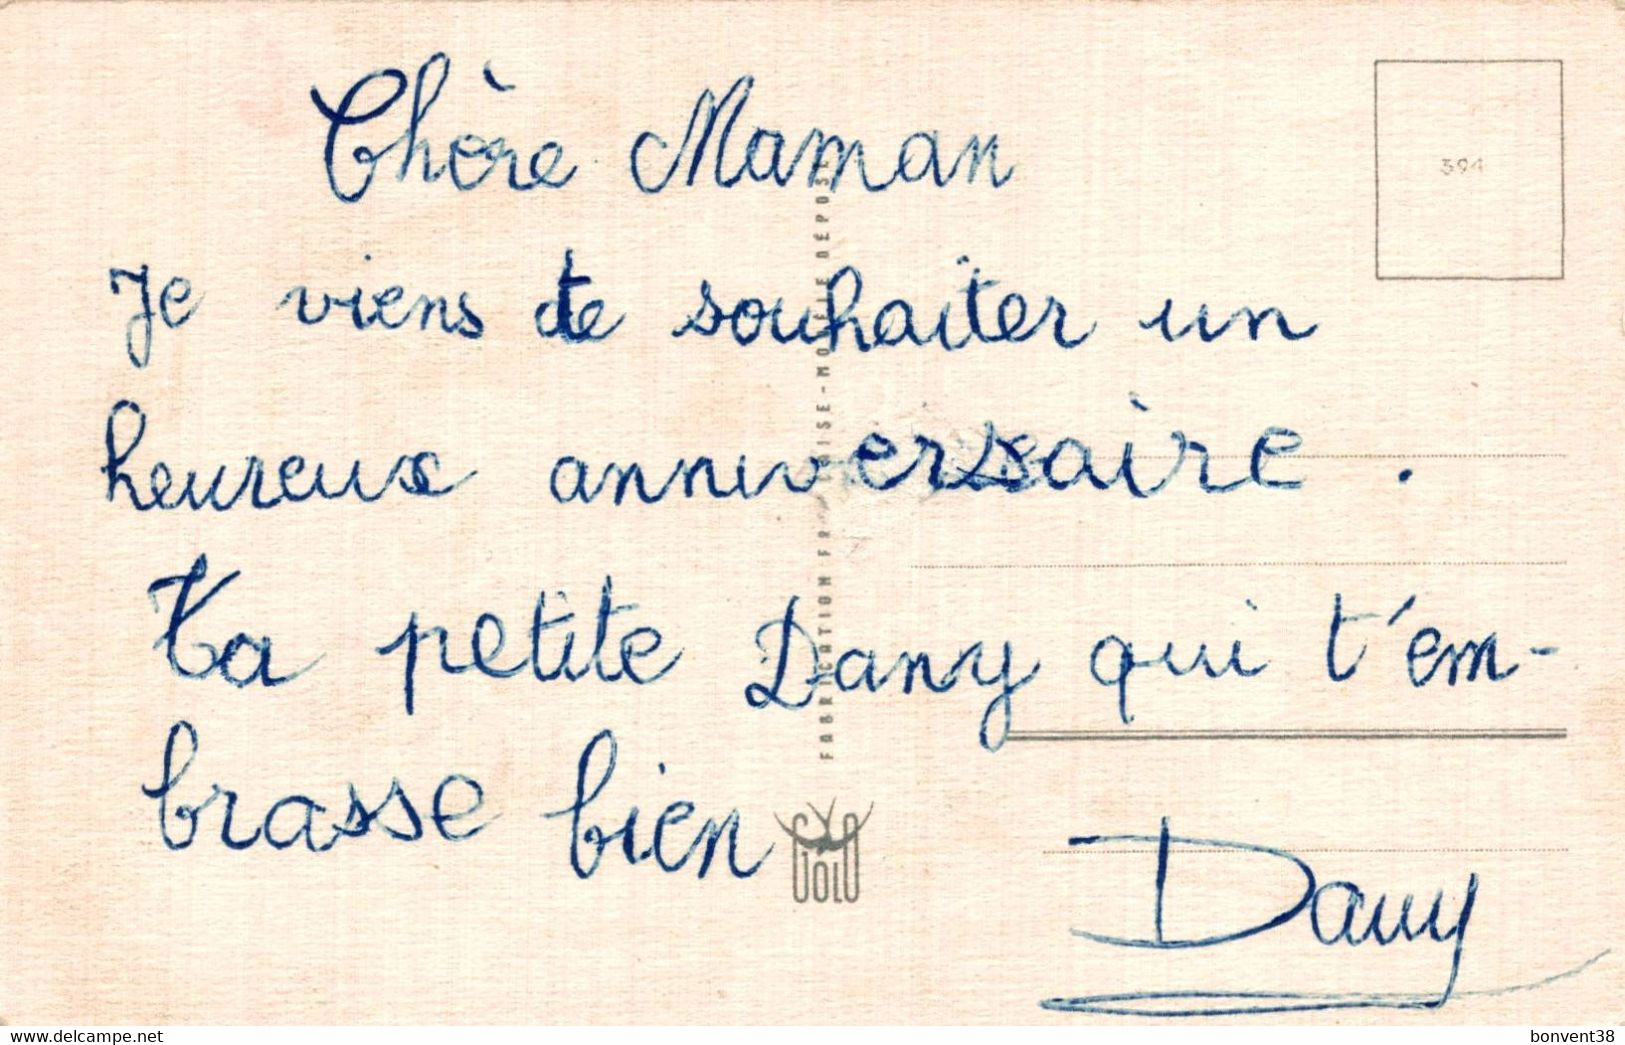 Chère Maman
394
Je viens te souhaiter un
heureux anniversaire.
Ta petite Dany qui t'em-
brasse bien
Dany
FABRICATION FRANÇAISE - MODÈLE DÉPOSÉ
www.delcampe.net
bonvent38